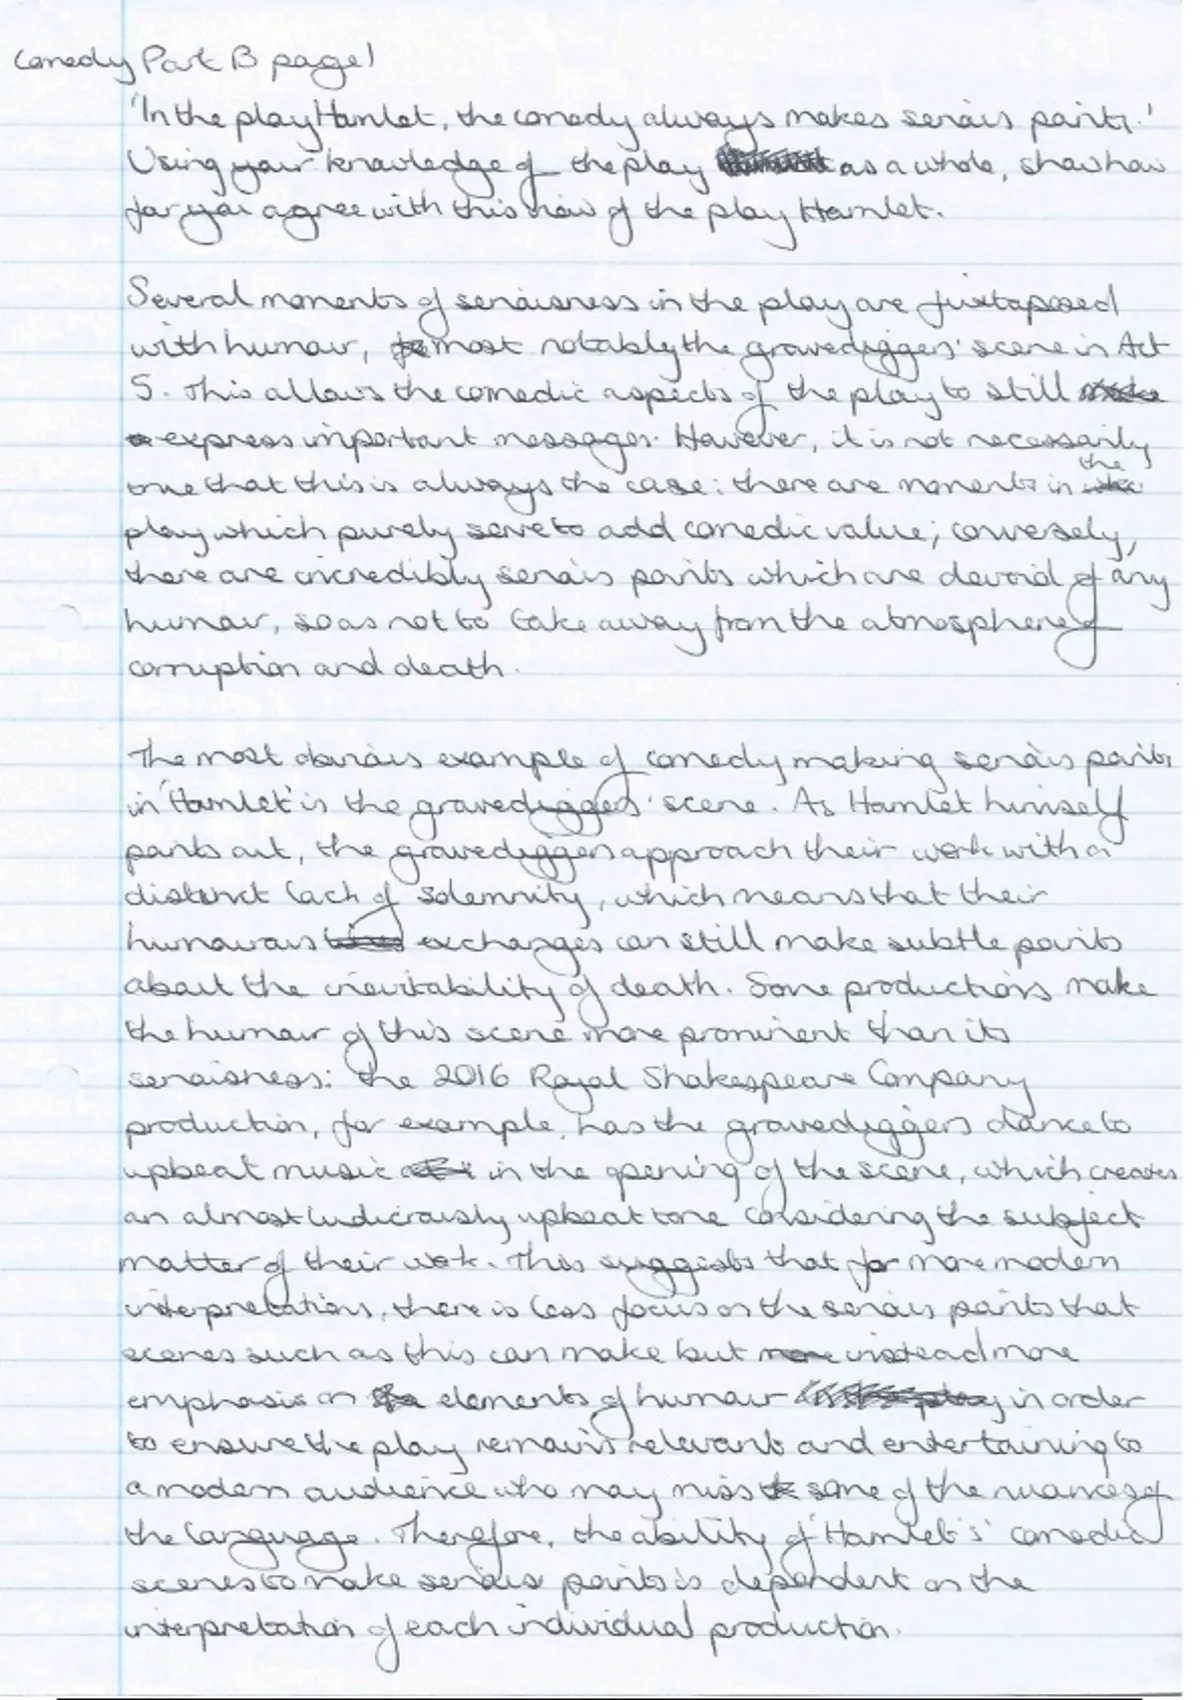 Comedy Part B page 1
'In the play Hamlet, the comedy always makes serious points.'
Using your knowledge of the play as a whole, show how
far you agree with this view of the play Hamlet.
Several moments of seriousness in the play are juxtaposed
with humour, most notably the gravediggers' scene in Act
5. This allows the comedic aspects of the play to still
express important messages. However, it is not necessarily
true that this is always the case: there are moments in the
play which purely serve to add comedic value; conversely,
there are incredibly serious points which are devoid of any
humour, so as not to take away from the atmosphere of
corruption and death.
The most obvious example of comedy making serious points
in 'Hamlet' is the gravediggers' scene. As Hamlet himself
points out, the gravediggers approach their work with a
distinct lack of solemnity, which means that their
humourous exchanges can still make subtle points
about the inevitability of death. Some productions make
the humour of this scene more prominent than its
seriousness: the 2016 Royal Shakespeare Company
production, for example, has the gravediggers dance to
upbeat music in the opening of the scene, which creates
an almost ludicrously upbeat tone considering the subject
matter of their work. This suggests that for more modern
interpretations, there is less focus on the serious points that
scenes such as this can make but instead more
emphasis on elements of humour in order
to ensure the play remains relevant and entertaining to
a modern audience who may miss some of the nuances of
the language. Therefore, the ability of 'Hamlet's' comedic
scenes to make serious points is dependent on the
interpretation of each individual production.